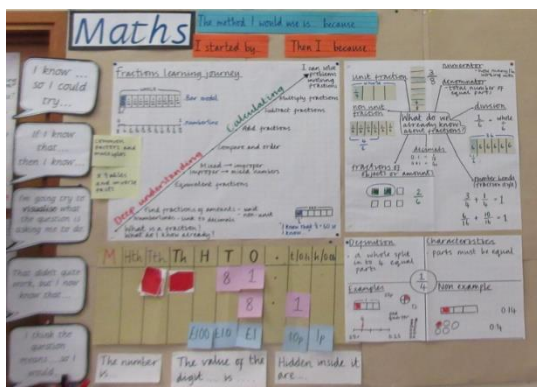 Maths
The method I would use is... because
I started by...
Then I... because...
I know...
so I could
try...
If I
know
that...
then I know...
I'm going try to
visualise what
the question is
asking me to do.
That didn't quite
work, but I now
know that...
I think the
question
means... so I
would...
Fractions learning journey
Bar model
numberline
common
factors and
multiples
x tables and inverse
facts
Deep understanding
Calculating
I can solve
problems
involving
fractions
Multiply fractions
Subtract fractions
Add fractions
Compare and order
Mixed → improper
improper → mixed numbers
Equivalent fractions
Find fractions of amounts - unit
- non-unit
Numberlines - link to decimals
What is a fraction?
What do I know already?
Unit fraction
Non unit
fraction
Fractions of
objects or amount
2
6
What do we
already know
about fractions?
numerator
denominator
- total number of
equal parts
division
decimals
Definition
• A whole split
into 4 equal
parts
Characteristics
parts must be equal
1
4
Examples
0.25
Non example
0.14
0.4
M HTh TTh Th H T O . t/0.1 h/0.01
8 1
8 . 1
£100 £10 £1 10p 1p
The number
is...
The value of the
digit ... is ...
Hidden inside it
are...